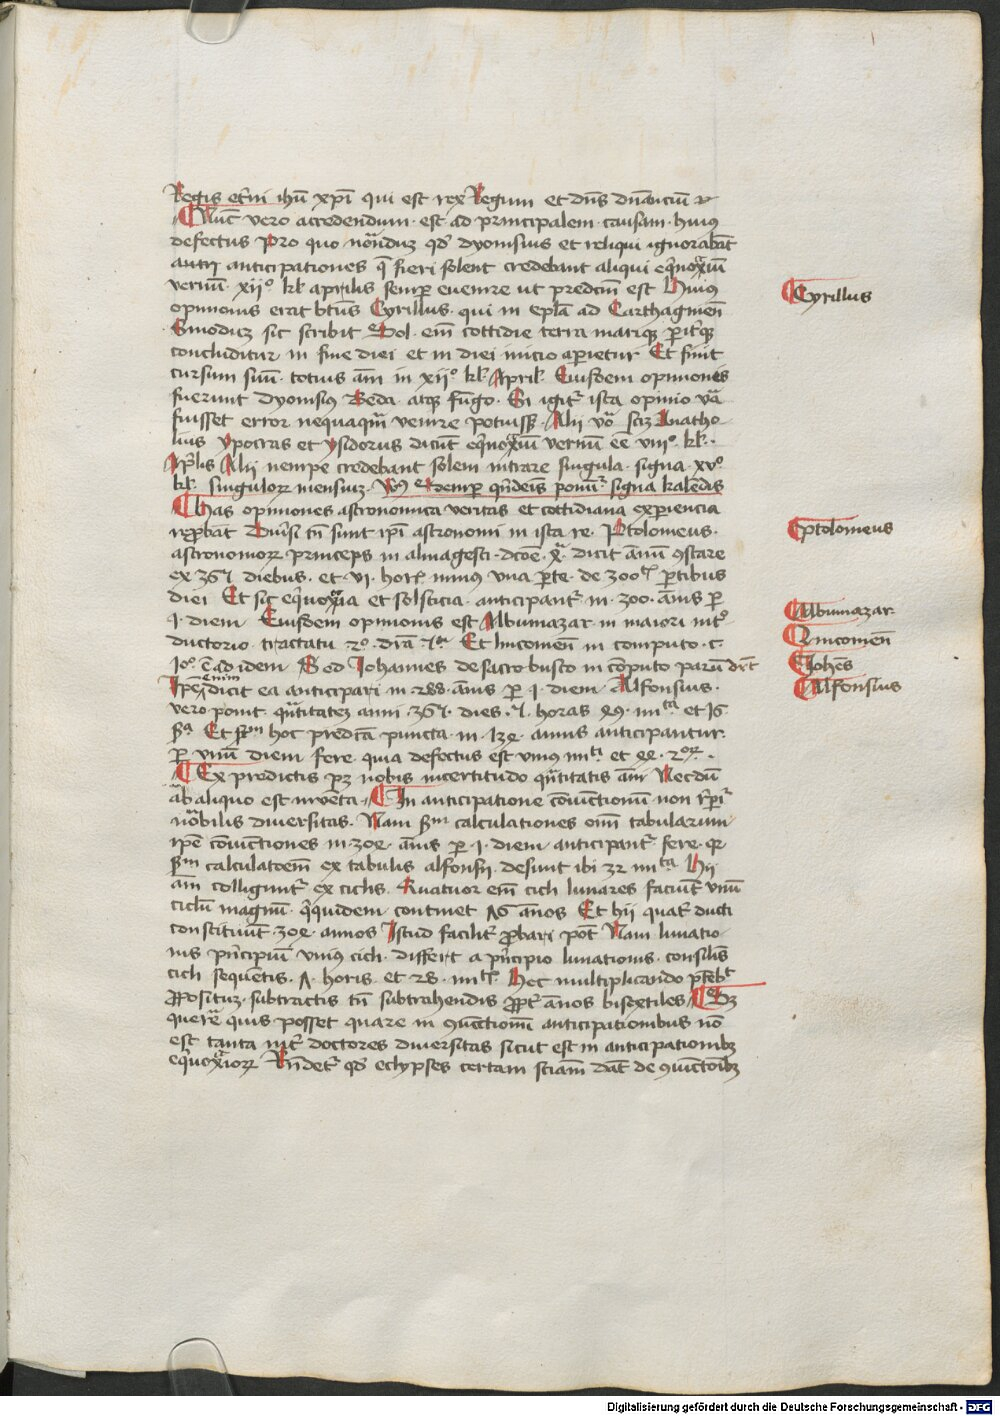 Regis etͥni ihū xpī qui est rex Regum et dn̄s dn̄anciū ⁊c
Nūc vero accedendum est ad principalem causam huius
defectus Pro quo notanduz qd̛ dyonisius et reliqui ignorabāt
anticipationes q̄ fieri solent credebant aliqui eq̄noxiū
vernū xiiº kl̛ aprilis semꝑ euenire ut predcm̄ est Huius
opinionis erat btūs Cyrillus qui in epl̄a ad Carthaginen̄
Sinoduz sic scribit Sol em̄ cottidie terra mariqꝫ ꝑit̛qꝫ
concluditur in fine diei et in diei inicio aperietur Et finit
cursum suū totius an̄i in xiiº kl̛ April̛ Eiusdem opiniones
fuerunt Dyonisius Beda atqꝫ Si igit̛ ista opinio v̄a
fuisset error nequaq̄m venire potuissꝫ Alii v̄o scꝫ Anatho
lius ypocras et ysidorus dicūt eq̄noxiū vernū ēē viiiº kl̛
Ap̛lis Alii nempe credebant solem intrare singula signa xvº
kl̛ singuloꝝ mensiuꝫ Vꝰ Semꝑ q̄ndenis ponūt̛ signa kalēdis
Has opiniones astronomica veritas et cottidiana experiencia
rep̛bāt Diưsi tn̄ sunt ip̄i astronomi in ista re Ptolomeus
astronomoꝝ princeps in almagesti dcōe x̄a dicit annū ꝯstare
ex 365 diebus et vi hor̛ minus vna ꝑte de 300 ꝑtibus
diei Et sic eq̄noxia et solsticia anticipant̛ in 300 annis ꝑ
1 diem Eiusdem opinionis est Albumazar in maiori int̛º
ductorio tractatu 2º Et lincomen̄ in computo c
10º ad idem Sed Johannes de sacro busto in cōputo parū
Ip̄e enim dicit ea anticipari in 288 annis ꝑ 1 diem Alfonsius
vero ponit q̄ntitatez anni 365 dies 5 horas 49 mīta et 16
2ª Et ſm hoc predc̄a puncta in annis anticipantur
ꝑ vnū diem fere quia defectus est vnius
Ex predictis pꝫ nobis incertitudo q̄ntitatis an̄i Necdū
ab aliquo est inuēta In anticipatione cōiūctionum non
notabilis diuersitas Nam ſm calculationes om̄i tabularum
ip̄e cōiūctiones in 304 annis ꝑ 1 diem anticipant̛ fere qꝛ
ſm calculatōem ex tabulis alfonsij desunt ibi 32 mīta Hii
an̄i colligunt̛ ex ciclis Quatuor em̄ cicli lunares faciūt vnū
ciclū magnū qui quidem continet 76 annos Et hii quat̛ ducti
constituūt 304 annos Istud facilit̛ ꝓbari pōt Nam lunatio
nis principiū vnius cicli differt a principio lunationis consilis
cicli sequētis 7 horis et 28 mīt̛ Hec multiplicando
ꝓpositum subtractis tn̄ subtrahendis ꝓpt̛ annos bisextiles Sꝫ
querē quis posset quare in ꝯiūctionū anticipationibus nō
est tanta int̛ doctores diuersitas sicut est in anticipationibꝫ
eq̄noxioꝝ Rn̄det̛ qd̛ eclypses certam sciam̄ dāt de ꝯiūctōibꝫ
Cyrillus
Ptolomeus
Albumazar
Lincomen̄
Johēs
Alfonsius
Digitalisierung gefördert durch die Deutsche Forschungsgemeinschaft - DFG